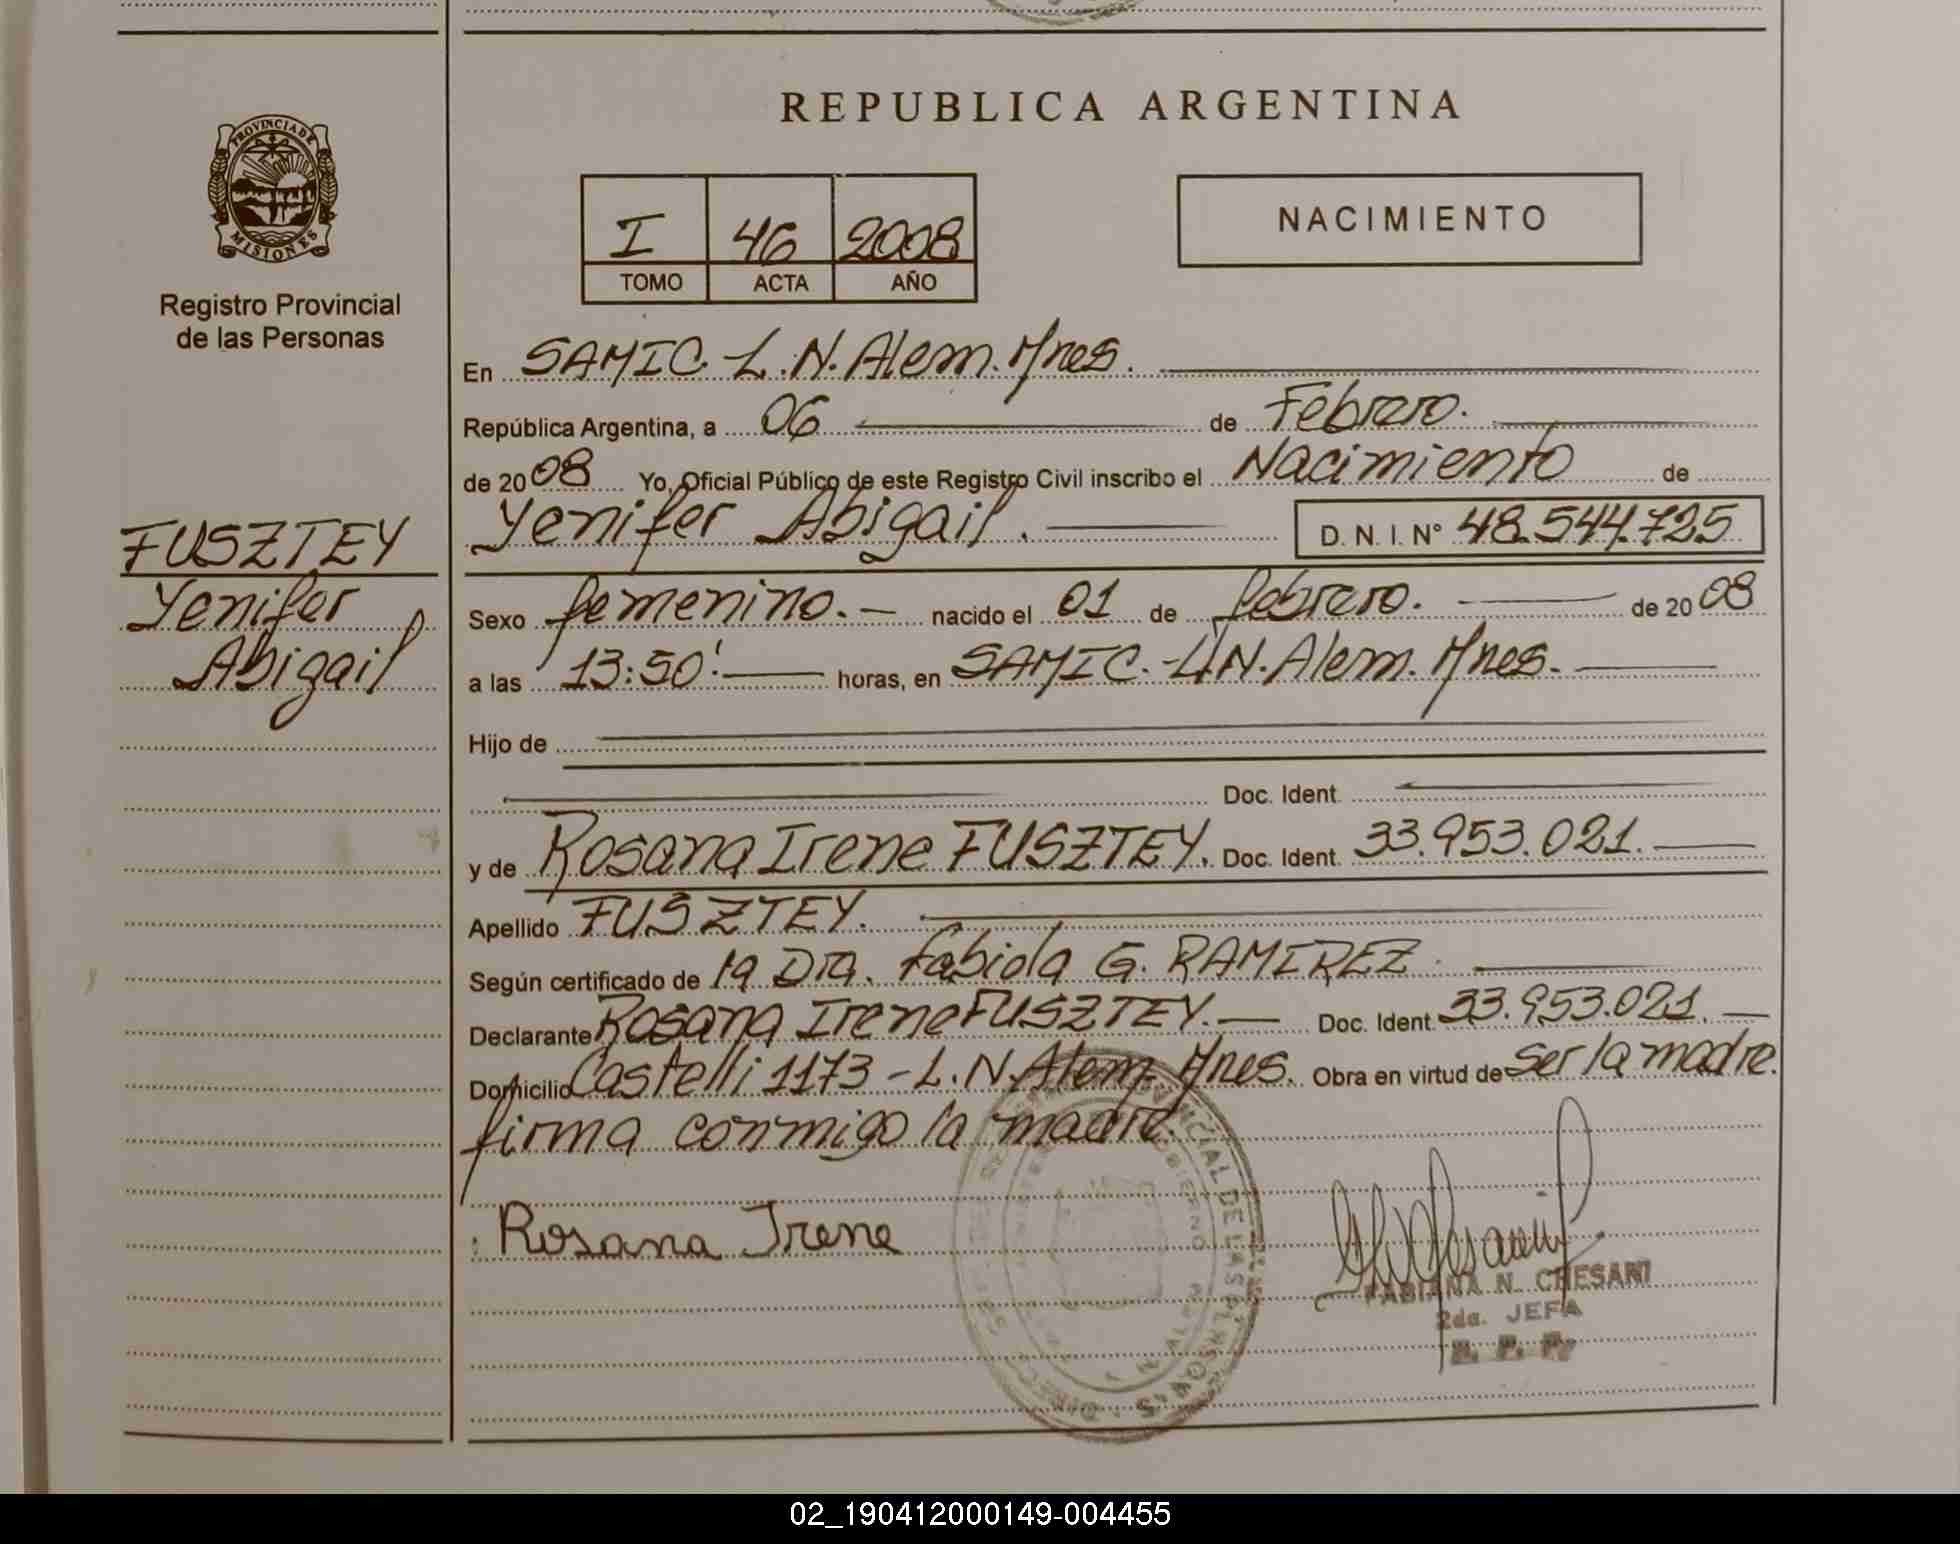 REPUBLICA ARGENTINA
PROVINCIA DE MISIONES
Registro Provincial
de las Personas
I 46 2008
TOMO ACTA AÑO
NACIMIENTO
En SAMIC. L.N.Alem.Mnes.
República Argentina, a 06 de Febrero.
de 2008 Yo, Oficial Público de este Registro Civil inscribo el Nacimiento de
Yenifer Abigail. D. N. I. N° 48.544.725
FUSZTEY
Yenifer
Abigail
Sexo femenino. nacido el 01 de febrero. de 2008
a las 13:50' horas, en SAMIC.-L.N.Alem.Mnes.
Hijo de
Doc. Ident.
y de Rosana Irene FUSZTEY. Doc. Ident. 33.953.021.
Apellido FUSZTEY.
Según certificado de la Dra. Fabiola G. RAMIREZ.
Declarante Rosana Irene FUSZTEY. Doc. Ident. 33.953.021.
Domicilio Castelli 1173-L.N.Alem.Mnes. Obra en virtud de ser la madre.
firma conmigo la madre.
Rosana Irene
FABIANA N. CHESANI
2da. JEFA
R. P. P.
02_190412000149-004455